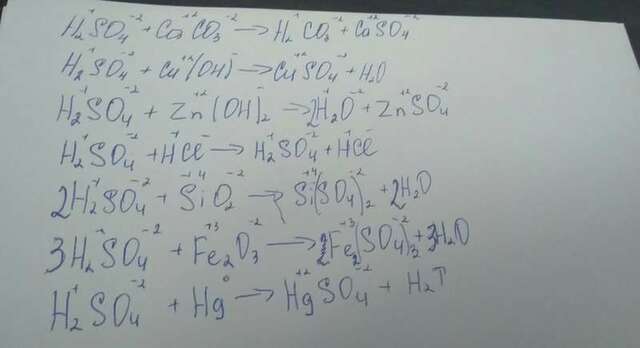 H₂⁺¹SO₄⁻² + Ca⁺²CO₃⁻² → H₂⁺¹CO₃⁻² + Ca⁺²SO₄⁻²
H₂⁺¹SO₄⁻² + Cu⁺²(OH)⁻ → Cu⁺²SO₄⁻² + H₂O
H₂⁺¹SO₄⁻² + Zn⁺²(OH)₂⁻ → 2H₂⁺¹O⁻² + Zn⁺²SO₄⁻²
H₂⁺¹SO₄⁻² + H⁺¹Cl⁻ → H₂⁺¹SO₄⁻² + H⁺¹Cl⁻
2H₂⁺¹SO₄⁻² + Si⁺⁴O₂⁻² → Si⁺⁴(SO₄)₂⁻² + 2H₂O
3H₂⁺¹SO₄⁻² + Fe₂⁺³O₃⁻² → Fe₂⁺³(SO₄)₃⁻² + 3H₂O
H₂⁺¹SO₄⁻² + Hg⁰ → Hg⁺²SO₄⁻² + H₂↑